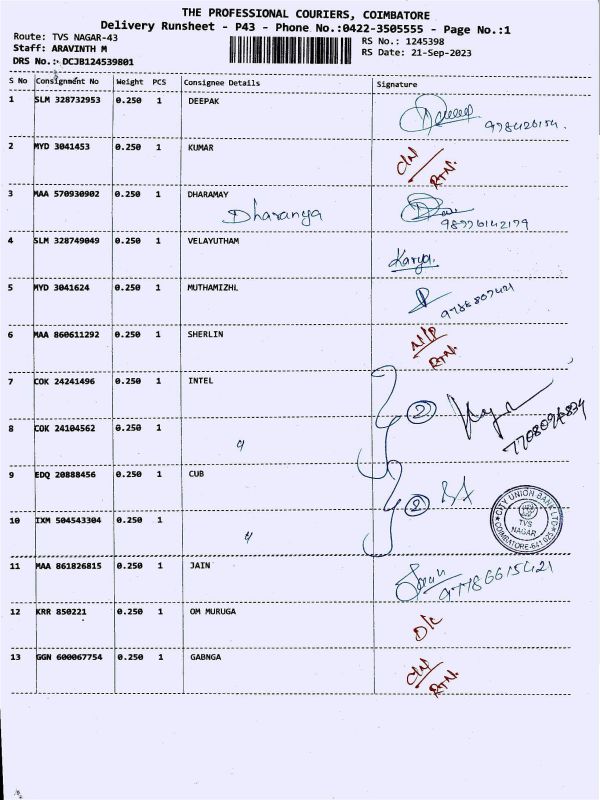 THE PROFESSIONAL COURIERS, COIMBATORE
Delivery Runsheet - P43 - Phone No.:0422-3505555 - Page No.:1
Route: TVS NAGAR-43
RS No.: 1245398
Staff: ARAVINTH M
RS Date: 21-Sep-2023
DRS No.: DCJB124539801
S No Consignment No Weight PCS Consignee Details Signature
1 SLM 328732953 0.250 1 DEEPAK
2 MYD 3041453 0.250 1 KUMAR
RTN.
3 MAA 570930902 0.250 1 DHARAMAY
Dharanya
4 SLM 328749049 0.250 1 VELAYUTHAM
Karya.
5 MYD 3041624 0.250 1 MUTHAMIZHL
6 MAA 860611292 0.250 1 SHERLIN
N/P
RTN.
7 COK 24241496 0.250 1 INTEL
2
8 COK 24104562 0.250 1
9 EDQ 20888456 0.250 1 CUB
2
CITY UNION BANK LTD.
TVS
NAGAR
COIMBATORE-641 025
10 IXM 504543304 0.250 1
11 MAA 861826815 0.250 1 JAIN
12 KRR 850221 0.250 1 OM MURUGA
D/C
13 GGN 600067754 0.250 1 GABNGA
RTN.